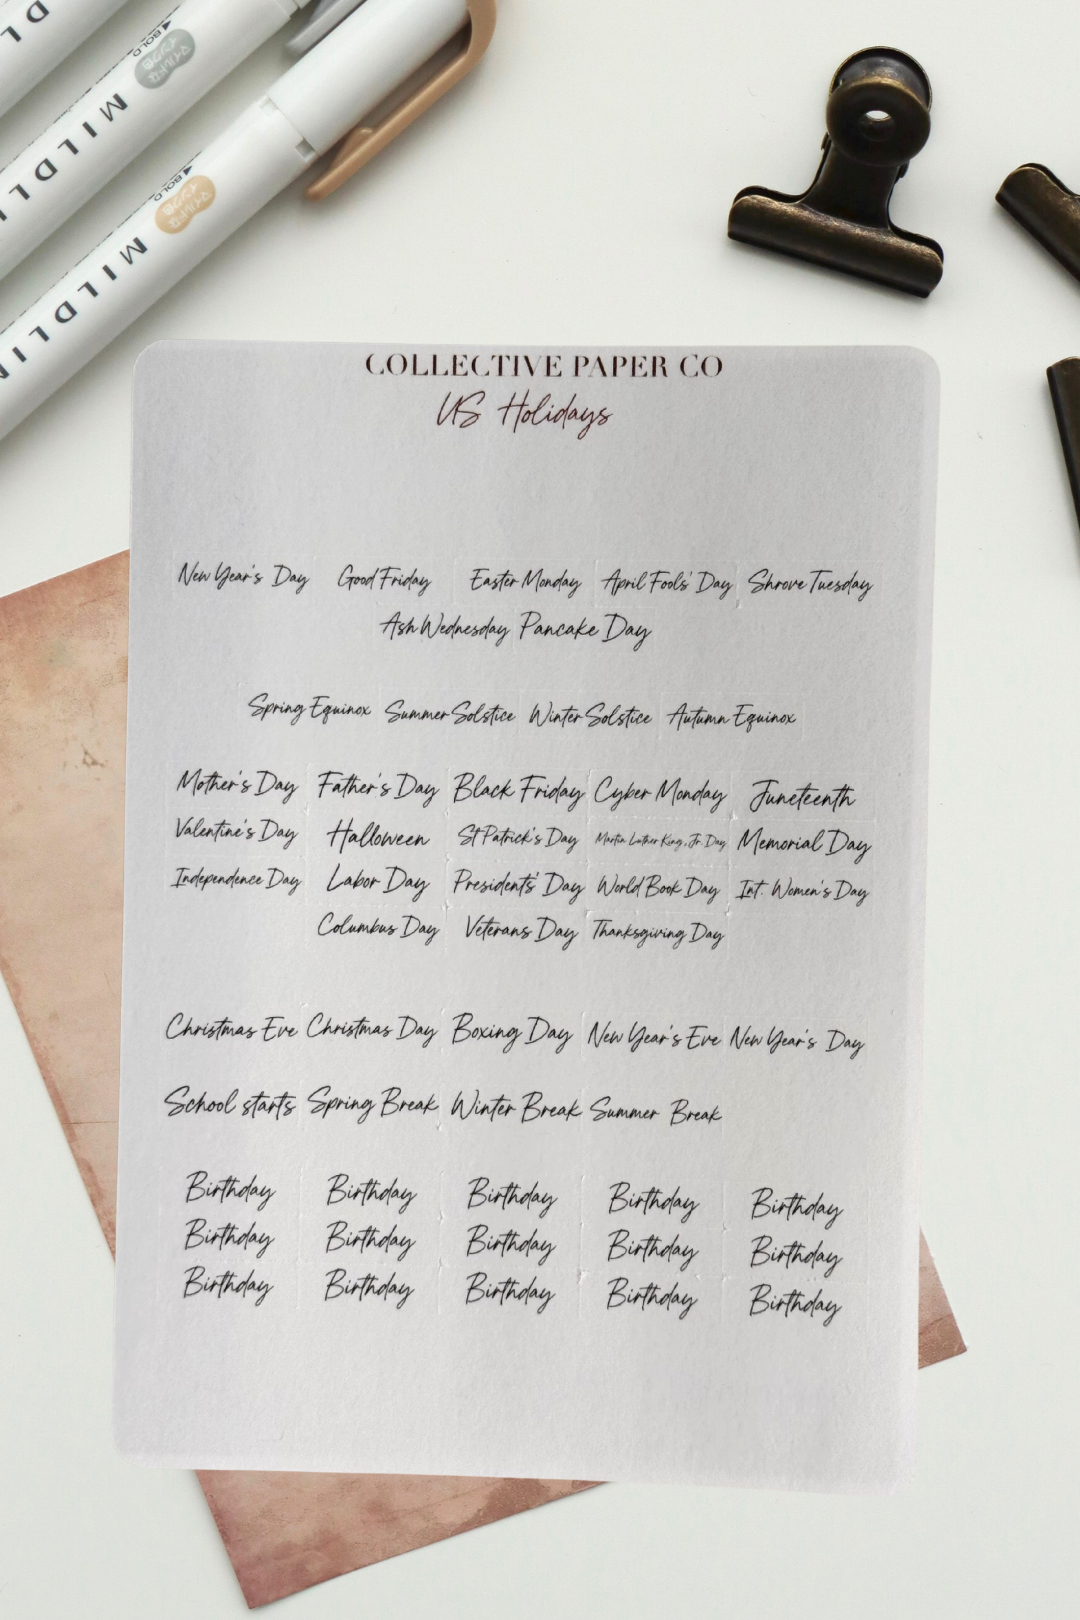 DL
BOLD
マイルドな
インク色
MILDLI
BOLD
マイルドな
インク色
MILDLIN
COLLECTIVE PAPER CO
US Holidays
New Year's Day Good Friday Easter Monday April Fools' Day Shrove Tuesday
Ash Wednesday Pancake Day
Spring Equinox Summer Solstice Winter Solstice Autumn Equinox
Mother's Day Father's Day Black Friday Cyber Monday Juneteenth
Valentine's Day Halloween St Patrick's Day Martin Luther King, Jr. Day Memorial Day
Independence Day Labor Day Presidents' Day World Book Day Int. Women's Day
Columbus Day Veterans Day Thanksgiving Day
Christmas Eve Christmas Day Boxing Day New Year's Eve New Year's Day
School starts Spring Break Winter Break Summer Break
Birthday Birthday Birthday Birthday Birthday
Birthday Birthday Birthday Birthday Birthday
Birthday Birthday Birthday Birthday Birthday